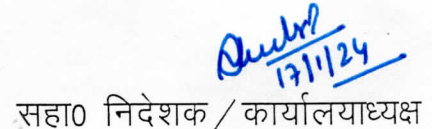 17/1/24
सहा0 निदेशक / कार्यालयाध्यक्ष